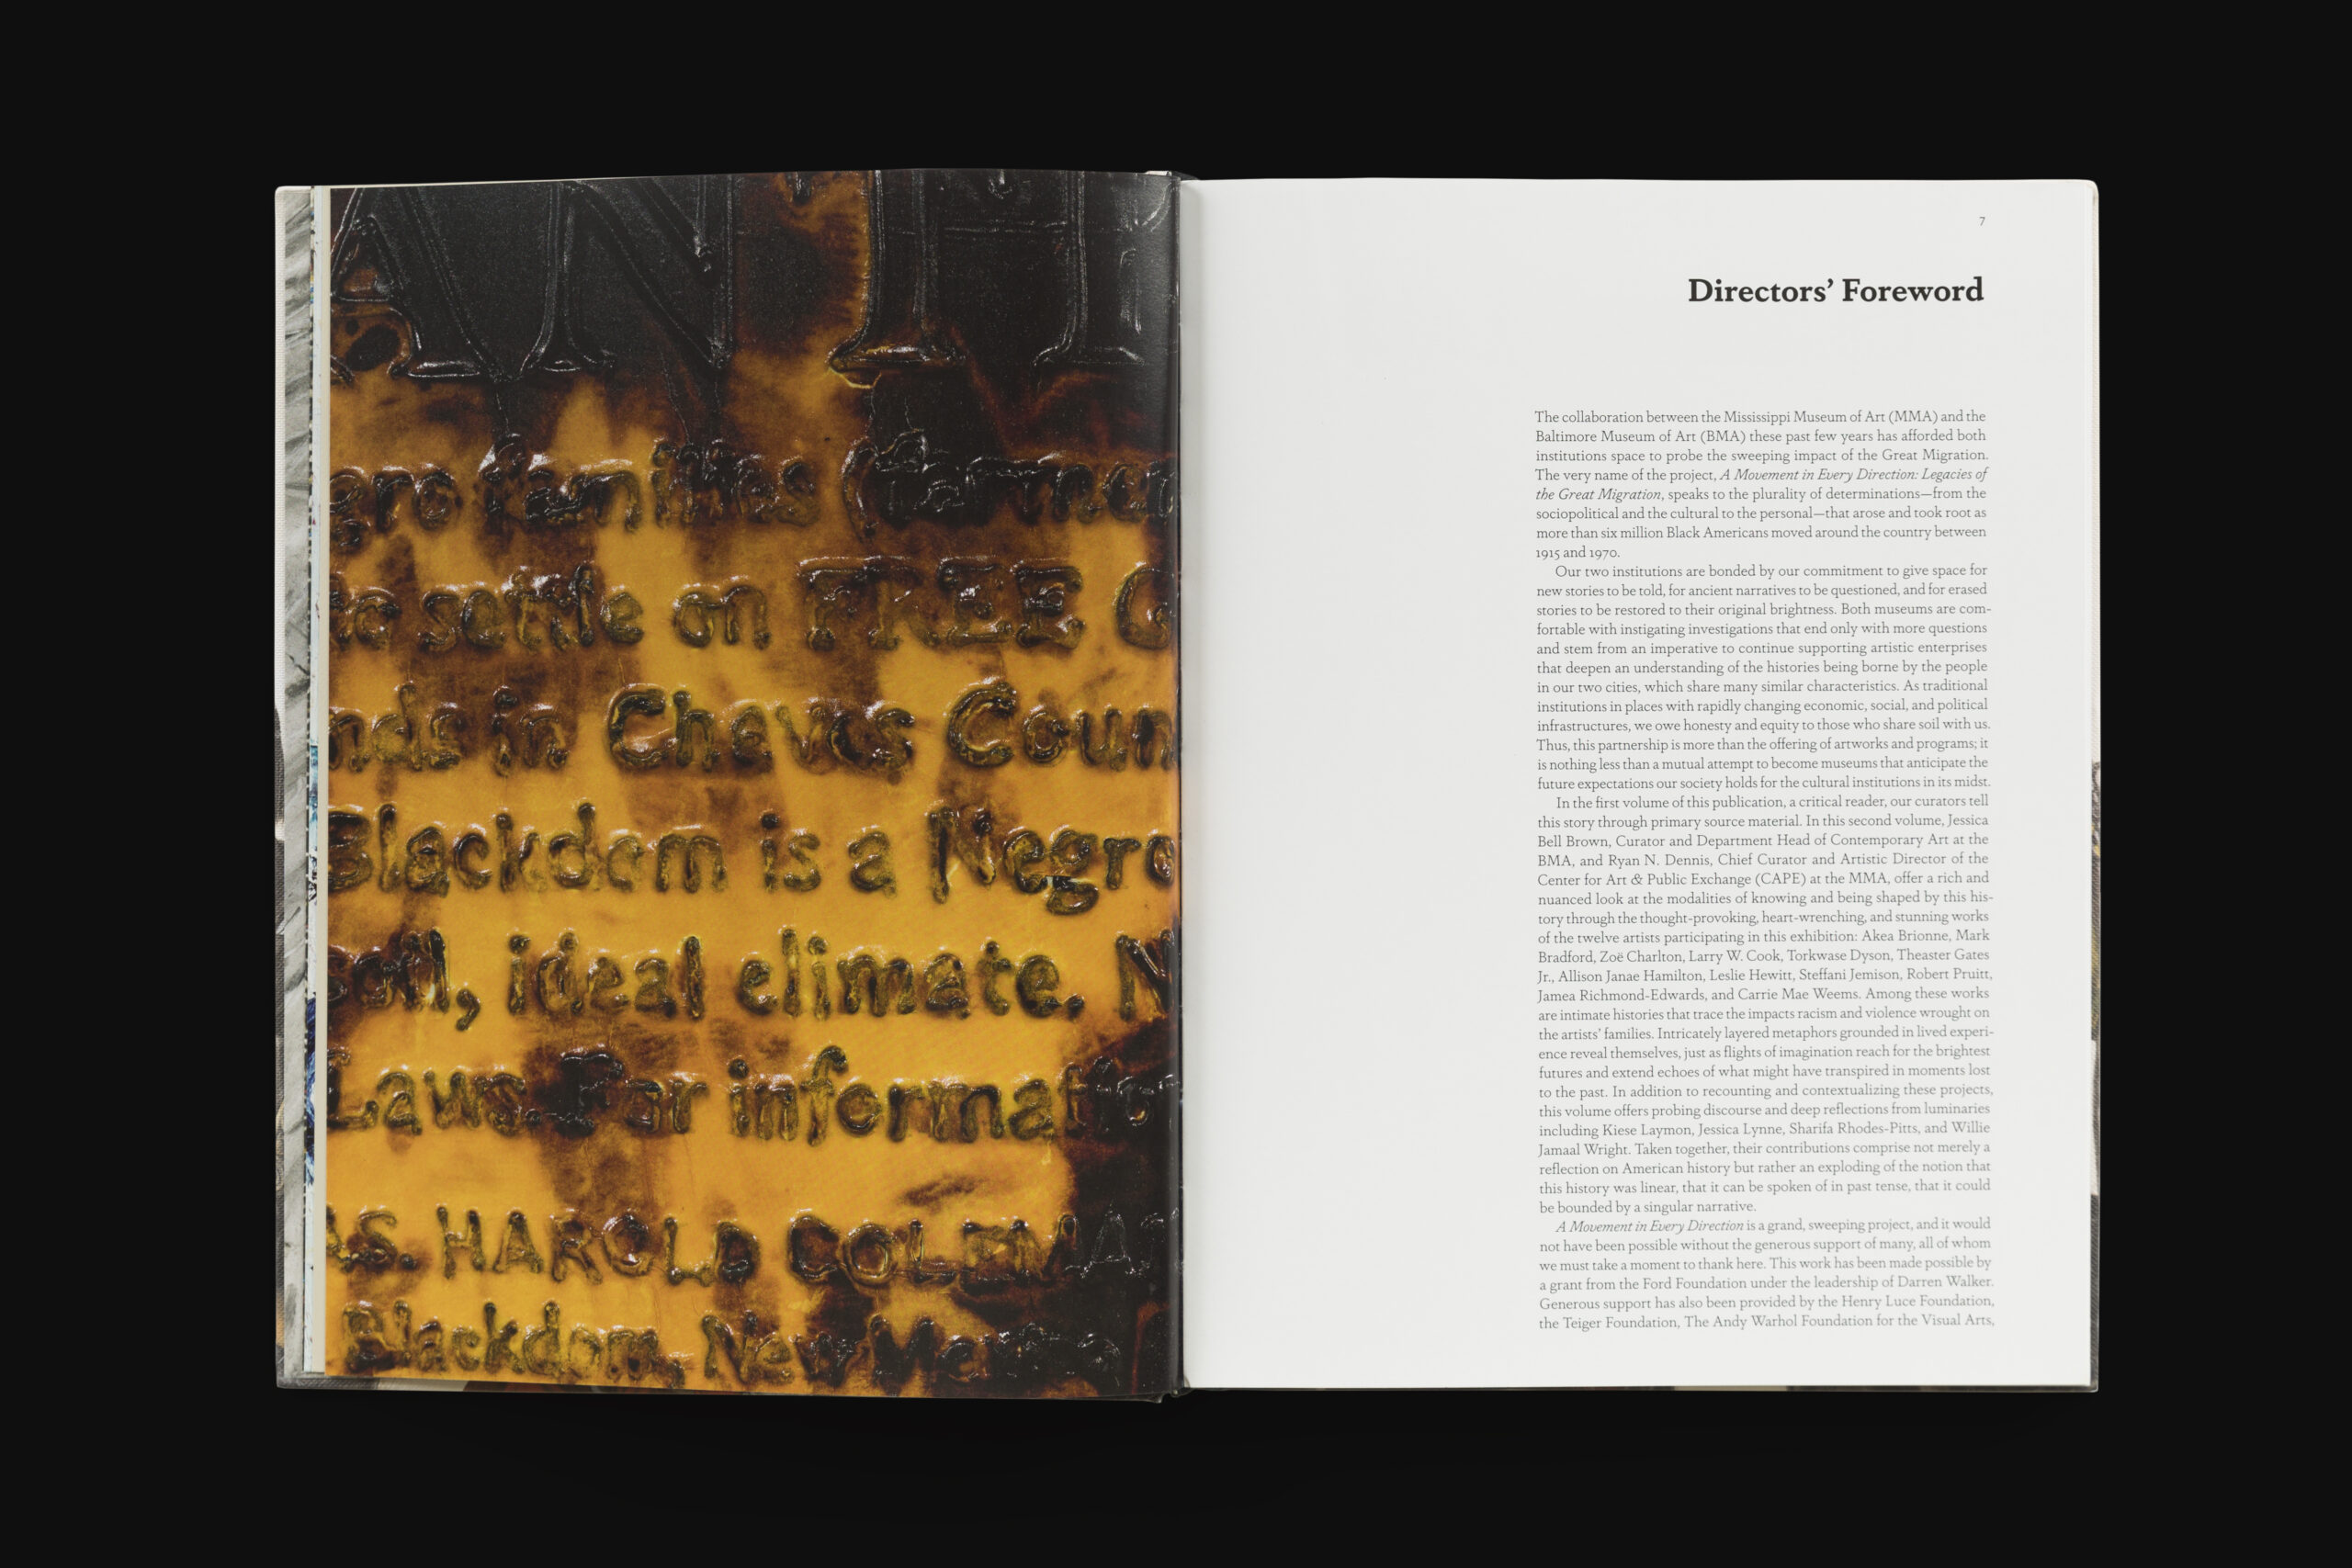 AN
gro families (farmer
to settle on FREE G
nds in Chaves Coun
Blackdom is a Negro
soil, ideal climate. N
Laws. For informatio
AS. HAROLD COLEMA
Blackdom, New Mexico
7
Directors’ Foreword
The collaboration between the Mississippi Museum of Art (MMA) and the
Baltimore Museum of Art (BMA) these past few years has afforded both
institutions space to probe the sweeping impact of the Great Migration.
The very name of the project, A Movement in Every Direction: Legacies of
the Great Migration, speaks to the plurality of determinations—from the
sociopolitical and the cultural to the personal—that arose and took root as
more than six million Black Americans moved around the country between
1915 and 1970.
Our two institutions are bonded by our commitment to give space for
new stories to be told, for ancient narratives to be questioned, and for erased
stories to be restored to their original brightness. Both museums are com-
fortable with instigating investigations that end only with more questions
and stem from an imperative to continue supporting artistic enterprises
that deepen an understanding of the histories being borne by the people
in our two cities, which share many similar characteristics. As traditional
institutions in places with rapidly changing economic, social, and political
infrastructures, we owe honesty and equity to those who share soil with us.
Thus, this partnership is more than the offering of artworks and programs; it
is nothing less than a mutual attempt to become museums that anticipate the
future expectations our society holds for the cultural institutions in its midst.
In the first volume of this publication, a critical reader, our curators tell
this story through primary source material. In this second volume, Jessica
Bell Brown, Curator and Department Head of Contemporary Art at the
BMA, and Ryan N. Dennis, Chief Curator and Artistic Director of the
Center for Art & Public Exchange (CAPE) at the MMA, offer a rich and
nuanced look at the modalities of knowing and being shaped by this his-
tory through the thought-provoking, heart-wrenching, and stunning works
of the twelve artists participating in this exhibition: Akea Brionne, Mark
Bradford, Zoë Charlton, Larry W. Cook, Torkwase Dyson, Theaster Gates
Jr., Allison Janae Hamilton, Leslie Hewitt, Steffani Jemison, Robert Pruitt,
Jamea Richmond-Edwards, and Carrie Mae Weems. Among these works
are intimate histories that trace the impacts racism and violence wrought on
the artists’ families. Intricately layered metaphors grounded in lived experi-
ence reveal themselves, just as flights of imagination reach for the brightest
futures and extend echoes of what might have transpired in moments lost
to the past. In addition to recounting and contextualizing these projects,
this volume offers probing discourse and deep reflections from luminaries
including Kiese Laymon, Jessica Lynne, Sharifa Rhodes-Pitts, and Willie
Jamaal Wright. Taken together, their contributions comprise not merely a
reflection on American history but rather an exploding of the notion that
this history was linear, that it can be spoken of in past tense, that it could
be bounded by a singular narrative.
A Movement in Every Direction is a grand, sweeping project, and it would
not have been possible without the generous support of many, all of whom
we must take a moment to thank here. This work has been made possible by
a grant from the Ford Foundation under the leadership of Darren Walker.
Generous support has also been provided by the Henry Luce Foundation,
the Teiger Foundation, The Andy Warhol Foundation for the Visual Arts,